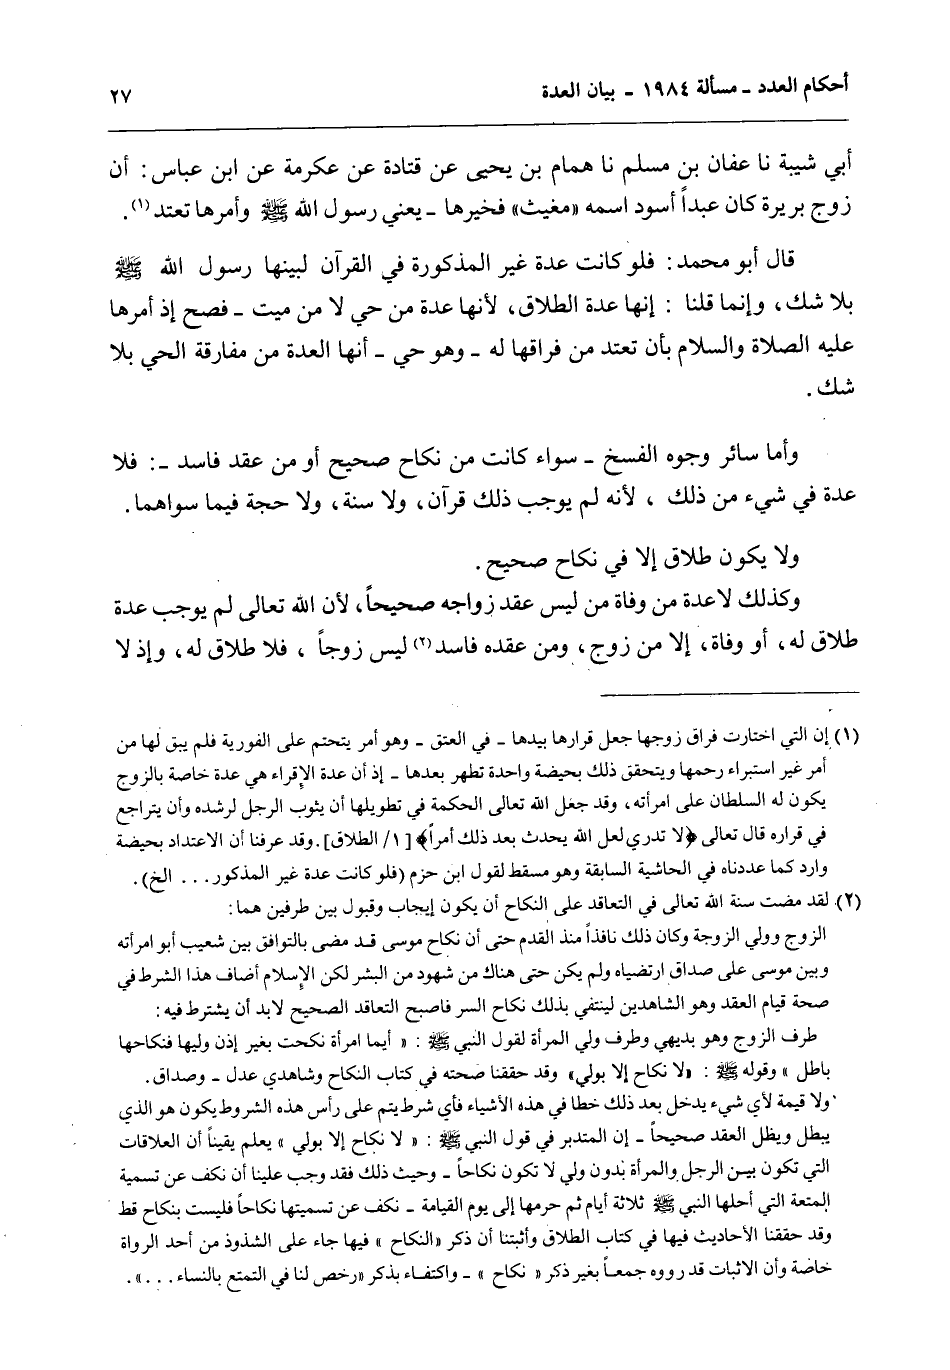 أحكام العدد ـ مسألة ١٩٨٤ ـ بيان العدة ٢٧
أبي شيبة نا عفان بن مسلم نا همام بن يحيى عن قتادة عن عكرمة عن ابن عباس: أن
زوج بريرة كان عبداً أسود اسمه «مغيث» فخيرها ـ يعني رسول الله ﷺ وأمرها تعتد(١).
قال أبو محمد: فلو كانت عدة غير المذكورة في القرآن لبينها رسول الله ﷺ
بلا شك، وإنما قلنا : إنها عدة الطلاق، لأنها عدة من حي لا من ميت ـ فصح إذ أمرها
عليه الصلاة والسلام بأن تعتد من فراقها له ـ وهو حي ـ أنها العدة من مفارقة الحي بلا
شك.
وأما سائر وجوه الفسخ ـ سواء كانت من نكاح صحيح أو من عقد فاسد ـ: فلا
عدة في شيء من ذلك ، لأنه لم يوجب ذلك قرآن، ولا سنة، ولا حجة فيما سواهما.
ولا يكون طلاق إلا في نكاح صحيح.
وكذلك لاعدة من وفاة من ليس عقد زواجه صحيحاً، لأن الله تعالى لم يوجب عدة
طلاق له، أو وفاة، إلا من زوج، ومن عقده فاسد(٢) ليس زوجاً ، فلا طلاق له، وإذ لا
(١) إن التي اختارت فراق زوجها جعل قرارها بيدها ـ في العتق ـ وهو أمر يتحتم على الفورية فلم يبق لها من
أمر غير استبراء رحمها ويتحقق ذلك بحيضة واحدة تطهر بعدها ـ إذ أن عدة الإقراء هي عدة خاصة بالزوج
يكون له السلطان على امرأته، وقد جعل الله تعالى الحكمة في تطويلها أن يثوب الرجل لرشده وأن يتراجع
في قراره قال تعالى ﴿لا تدري لعل الله يحدث بعد ذلك أمراً﴾ [١/ الطلاق]. وقد عرفنا أن الاعتداد بحيضة
وارد كما عددناه في الحاشية السابقة وهو مسقط لقول ابن حزم (فلو كانت عدة غير المذكور... الخ).
(٢) لقد مضت سنة الله تعالى في التعاقد على النكاح أن يكون إيجاب وقبول بين طرفين هما:
الزوج وولي الزوجة وكان ذلك نافذاً منذ القدم حتى أن نكاح موسى قد مضى بالتوافق بين شعيب أبو امرأته
وبين موسى على صداق ارتضياه ولم يكن حتى هناك من شهود من البشر لكن الإسلام أضاف هذا الشرط في
صحة قيام العقد وهو الشاهدين لينتفي بذلك نكاح السر فاصبح التعاقد الصحيح لابد أن يشترط فيه:
طرف الزوج وهو بديهي وطرف ولي المرأة لقول النبي ﷺ : « أيما امرأة نكحت بغير إذن وليها فنكاحها
باطل » وقوله ﷺ : «لا نكاح إلا بولي» وقد حققنا صحته في كتاب النكاح وشاهدي عدل ـ وصداق.
ولا قيمة لأي شيء يدخل بعد ذلك خطا في هذه الأشياء فأي شرط يتم على رأس هذه الشروط يكون هو الذي
يبطل ويظل العقد صحيحاً ـ إن المتدبر في قول النبي ﷺ : « لا نكاح إلا بولي » يعلم يقيناً أن العلاقات
التي تكون بين الرجل والمرأة بدون ولي لا تكون نكاحاً ـ وحيث ذلك فقد وجب علينا أن نكف عن تسمية
المتعة التي أحلها النبي ﷺ ثلاثة أيام ثم حرمها إلى يوم القيامة ـ نكف عن تسميتها نكاحاً فليست بنكاح قط
وقد حققنا الأحاديث فيها في كتاب الطلاق وأثبتنا أن ذكر «النكاح » فيها جاء على الشذوذ من أحد الرواة
خاصة وأن الاثبات قد رووه جمعاً بغير ذكر « نكاح » ـ واكتفاء بذكر «رخص لنا في التمتع بالنساء ...».